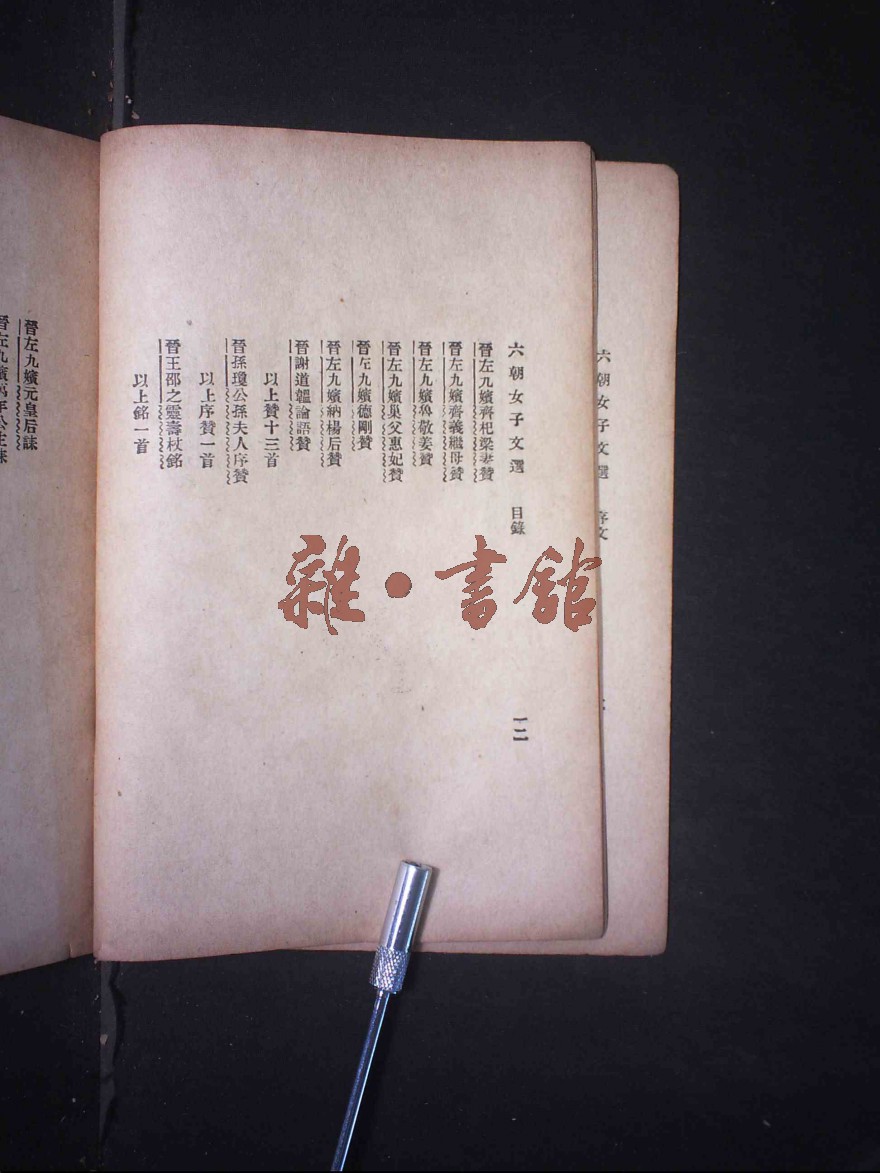 六朝女子文選 序文
六朝女子文選 目錄
一二
晉左九嬪齊杞梁妻贊
晉左九嬪齊義繼母贊
晉左九嬪魯敬姜贊
晉左九嬪巢父惠妃贊
晉左九嬪德剛贊
晉左九嬪納楊后贊
晉謝道韞論語贊
以上贊十三首
晉孫瓊公孫夫人序贊
以上序贊一首
晉王邵之靈壽杖銘
以上銘一首
晉左九嬪元皇后誄
晉左九嬪萬年公主誄
雜·書館